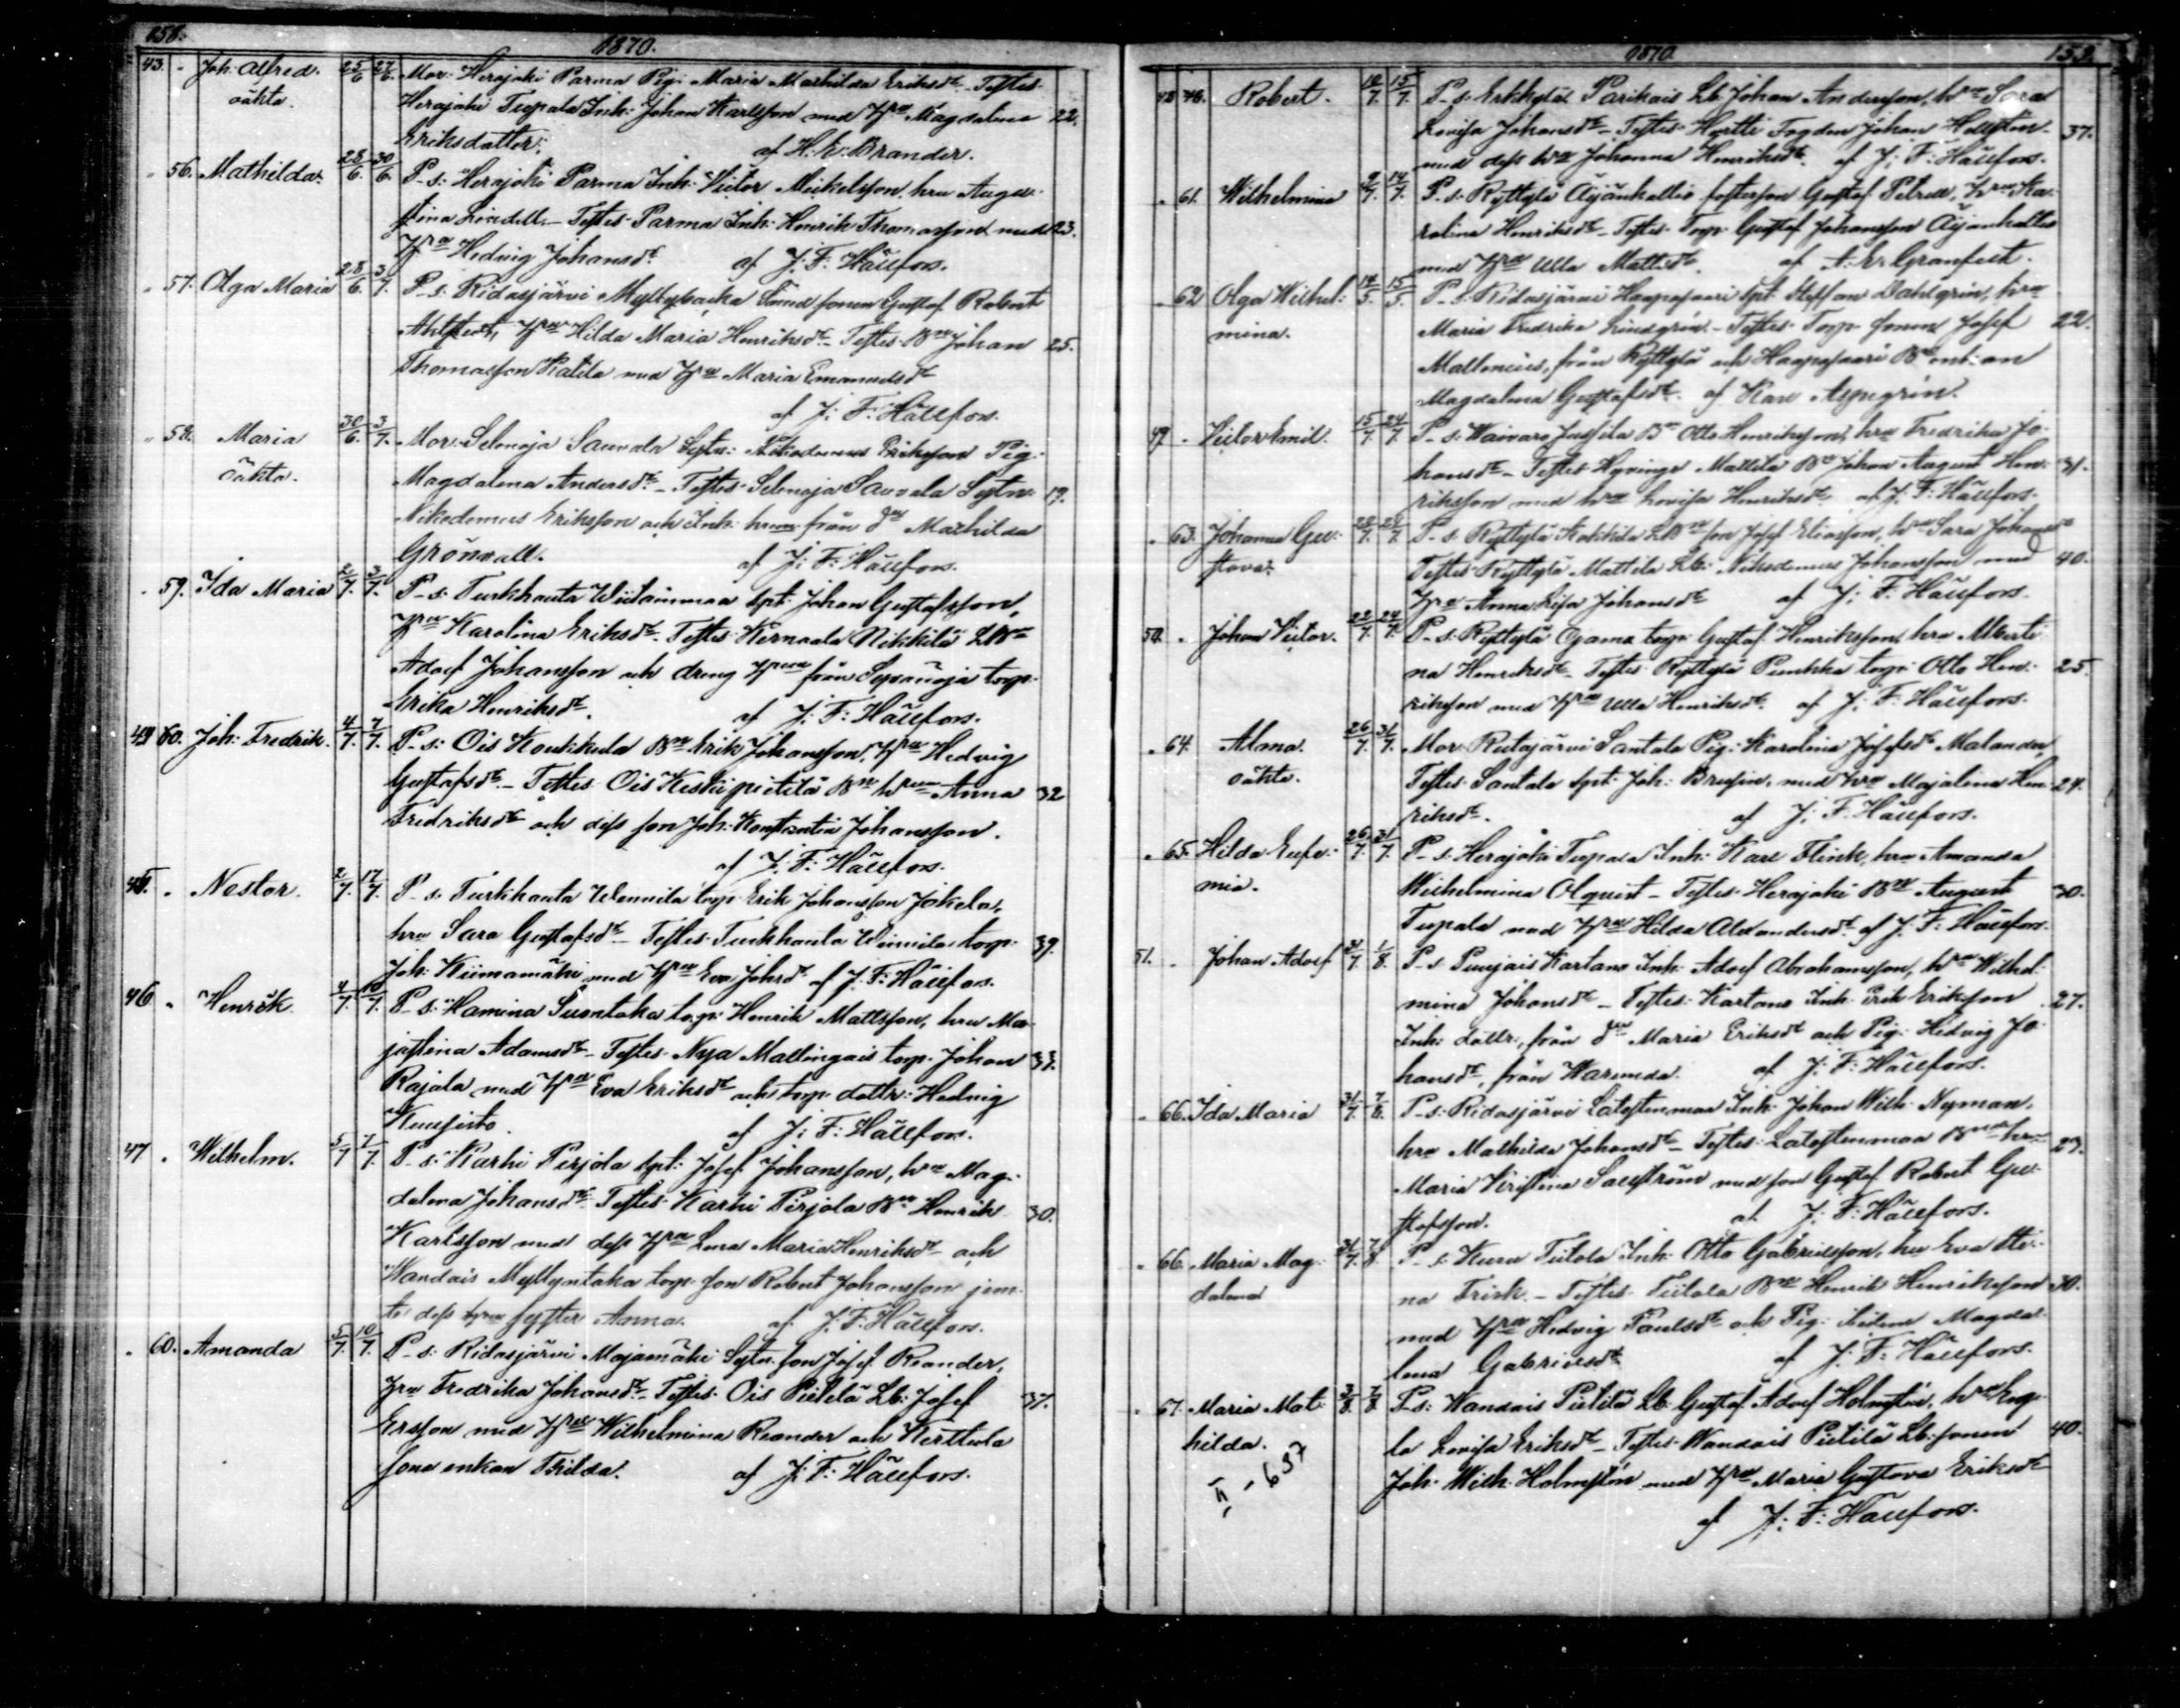 158.
1870.
43. - Joh: Alfred. 25/6 27/6. Mor: Herajoki Parma Pig: Maria Mathilda Eriksdr. Testes
oäkta. Herajoki Tupala Inh: Johan Karlsson med Hru Magdalena 22.
Eriksdotter. af H. E. Brander.
" 56. Mathilda. 28/6. 30/6. P-s: Herajoki Parma Inh: Victor Mickelsson, hru Augu-
stina Lindell. - Testes Parma Inh: Henrik Thomasson med 23.
Hru Hedvig Johansdr. af J: F: Hällfors.
" 57. Olga Maria 28/6. 3/7. P-s: Ridasjärvi Myllybacka Smed sonen Gustaf Robert
Ahlstedt, Hru Hilda Maria Henriksdr. - Testes Bn Johan 25.
Thomasson Katila med Hru Maria Emanuelsdr
af J: F: Hällfors.
" 58. Maria 30/6. 3/7. Mor: Selenoja Sauvala Sytn: Nikodemus Eriksson Pig:
oäkta. Magdalena Andersdr. - Testes Selenoja Sauvala Sytn: 19.
Nikodemus Eriksson och Inh: hrun från do Mathilda
Grönvall. af J: F: Hällfors.
" 59. Ida Maria 2/7. 3/7. P-s: Turkhauta Wiitainmaa Spt: Johan Gustafsson,
Hru Karolina Eriksdr. Testes Kernaala Nikkilä
Adolf Johansson och dreng från torp:
Erika Henriksdr. af J: F: Hällfors.
44 60. Joh: Fredrik. 4/7. 7/7. P-s: Ois Koukkula Bn Erik Johansson, Hru Hedvig
Gustafsdr. - Testes Ois Keskipietilä Bn hrun Anna 32
Fredriksdr och dess son Joh: Konstantin Johansson.
af J: F: Hällfors.
45. " Nestor. 2/7. 17/7. P-s: Turkhauta torp: Erik Johansson Jokela,
hru Sara Gustafsdr - Testes Turkhauta torp: 39.
Joh: Kiimamäki med Hru Eva Johsdr af J: F: Hällfors.
46. " Henrik 4/7. 10/7. P-s: Hamina Suontaka torp: Henrik Mattsson, hru Ma-
jastina Adamsdr - Testes Nya Mallingais torp: Johan 33.
Rajala med Hru Eva Eriksdr och torp: dottr: Hedvig
af J: F: Hällfors.
47 " Wilhelm. 5/7 7/7. P-s: Karhi Pirjola Spt: Josef Johansson, hru Mag-
dalena Johansdr. Testes Karhi Pirjola Bn Henrik 30.
Karlsson med dess Hru Lena Maria Henriksdr och
Wandais Myllyntaka torp: son Robert Johansson jem-
te dess syster Anna. af J. F: Hällfors.
" 60. Amanda 5/7. 10/7. P-s: Ridasjärvi Majamäki Sytn: son Josef Reander,
Hru Fredrika Johansdr. - Testes Ois Pietilä Lb: Josef 37.
Ersson med Hru Wilhelmina Reander och Kerttula
sone enkan Thilda. af J: F: Hällfors.
1870. 159.
48 Robert. 10/7. 15/7. P-s: Erkkylä Parikais Lb: Johan Andersson, hru Sara
Lovisa Johansdr - Testes Hyetti Fogden Johan Hellsten 37.
med dess hru Johanna Henriksdr. af J: F: Hällfors.
" 61. Wilhelmina 9/7. 14/7. P-s: Ryttylä Äijänkallio fosterson Gustaf Petrell, Hru Ka-
rolina Henriksdr - Testes Torp: Gustaf Johansson Äijänkallio
med Hru Ulla Mattsdr. af A: E: Granfelt.
" 62 Olga Wilhel- 14/5. 15/5. P-s: Ridasjärvi Haapasaari Spt: Steffan Dahlgrén, hru
mina. Maria Fredrika Lindgrén. - Testes Torp: sonen Josef 22.
från Ryttylä och Haapasaari
Magdalena Gustafsdr. af Karl Aspegrén.
49 - Victor Emil. 15/7. 24/7. P-s: Waivaro Jussila Bn Otto Henriksson, hru Fredrika Jo-
hansdr - Testes Hyvinge Mattila Bn Johan August Hen- 31.
riksson med hru Lovisa Henriksdr. af J: F: Hällfors.
" 63. Johanna Gu- P-s: Ryttylä Kokkila son Josef Eliasson, hru Sara Johansdr
stava. Testes Ryttylä Mattila Lb: Nikodemus Johansson med 40.
Hru Anna Lisa Johansdr af J: F: Hällfors.
50. " Johan Victor. 22/7. 24/7. P-s: Ryttylä Ojama torp: Gustaf Henriksson, hru Alberti-
na Henriksdr - Testes Ryttylä Punkka torp: Otto Hen- 25.
riksson med Hru Ulla Henriksdr. af J: F: Hällfors.
" 64. Alma. 26/7. 31/7. Mor: Rutajärvi Santala Pig: Karolina Josefsdr Malander,
oäkta. Testes Santala Spt: Joh: Brusin, med hru Majalena Hen- 24.
riksdr. af J: F: Hällfors.
" 65. Hilda Eufe- 26/7. 31/7. P-s: Herajoki Tupala Inh: Karl Flink, hru Amanda
mia. Wilhelmina Olqvist - Testes Herajoki Bn August 30.
Tupala med Hru Hilda Alexandersdr. af J: F: Hällfors.
51. " Johan Adolf 31/7 1/8. P-s: Punjais Kartano Inh: Adolf Abrahamsson, hru Wilhel-
mina Johansdr - Testes Kartano Inh: Erik Eriksson 27.
Inh: dottr: från do Maria Eriksdr och Pig: Hedvig Jo-
hansdr, från Warunda. af J: F: Hällfors.
" 66. Ida Maria 31/7. 7/8. P-s: Ridasjärvi Latostenmaa Inh: Johan Wilh: Nyman,
hru Mathilda Johansdr - Testes Latostenmaa 23.
Maria Kristina Sallström med son Gustaf Robert Gu-
stafsson. af J: F: Hällfors.
" 66. Maria Mag- 31/7. 7/8 P-s: Kuru Tiitola Inh: Otto Gabrielsson, hru Eva Sti-
dalena na Frisk. - Testes Tiitola Bn Henrik Henriksson 30.
med Hru Hedvig Paulsdr och Pig: Helena Magda-
lena Gabrielsdr af J: F: Hällfors.
" 67. Maria Mat- 3/8. 7/8. P-s: Wandais Pietilä Lb: Gustaf Adolf Holmstén, hru
hilda. Lovisa Eriksdr - Testes Wandais Pietilä Lb: sonen 40.
Joh: Wilh: Holmstén med Hru Maria Gustava Eriksdr
af J: F: Hällfors.
II - 657